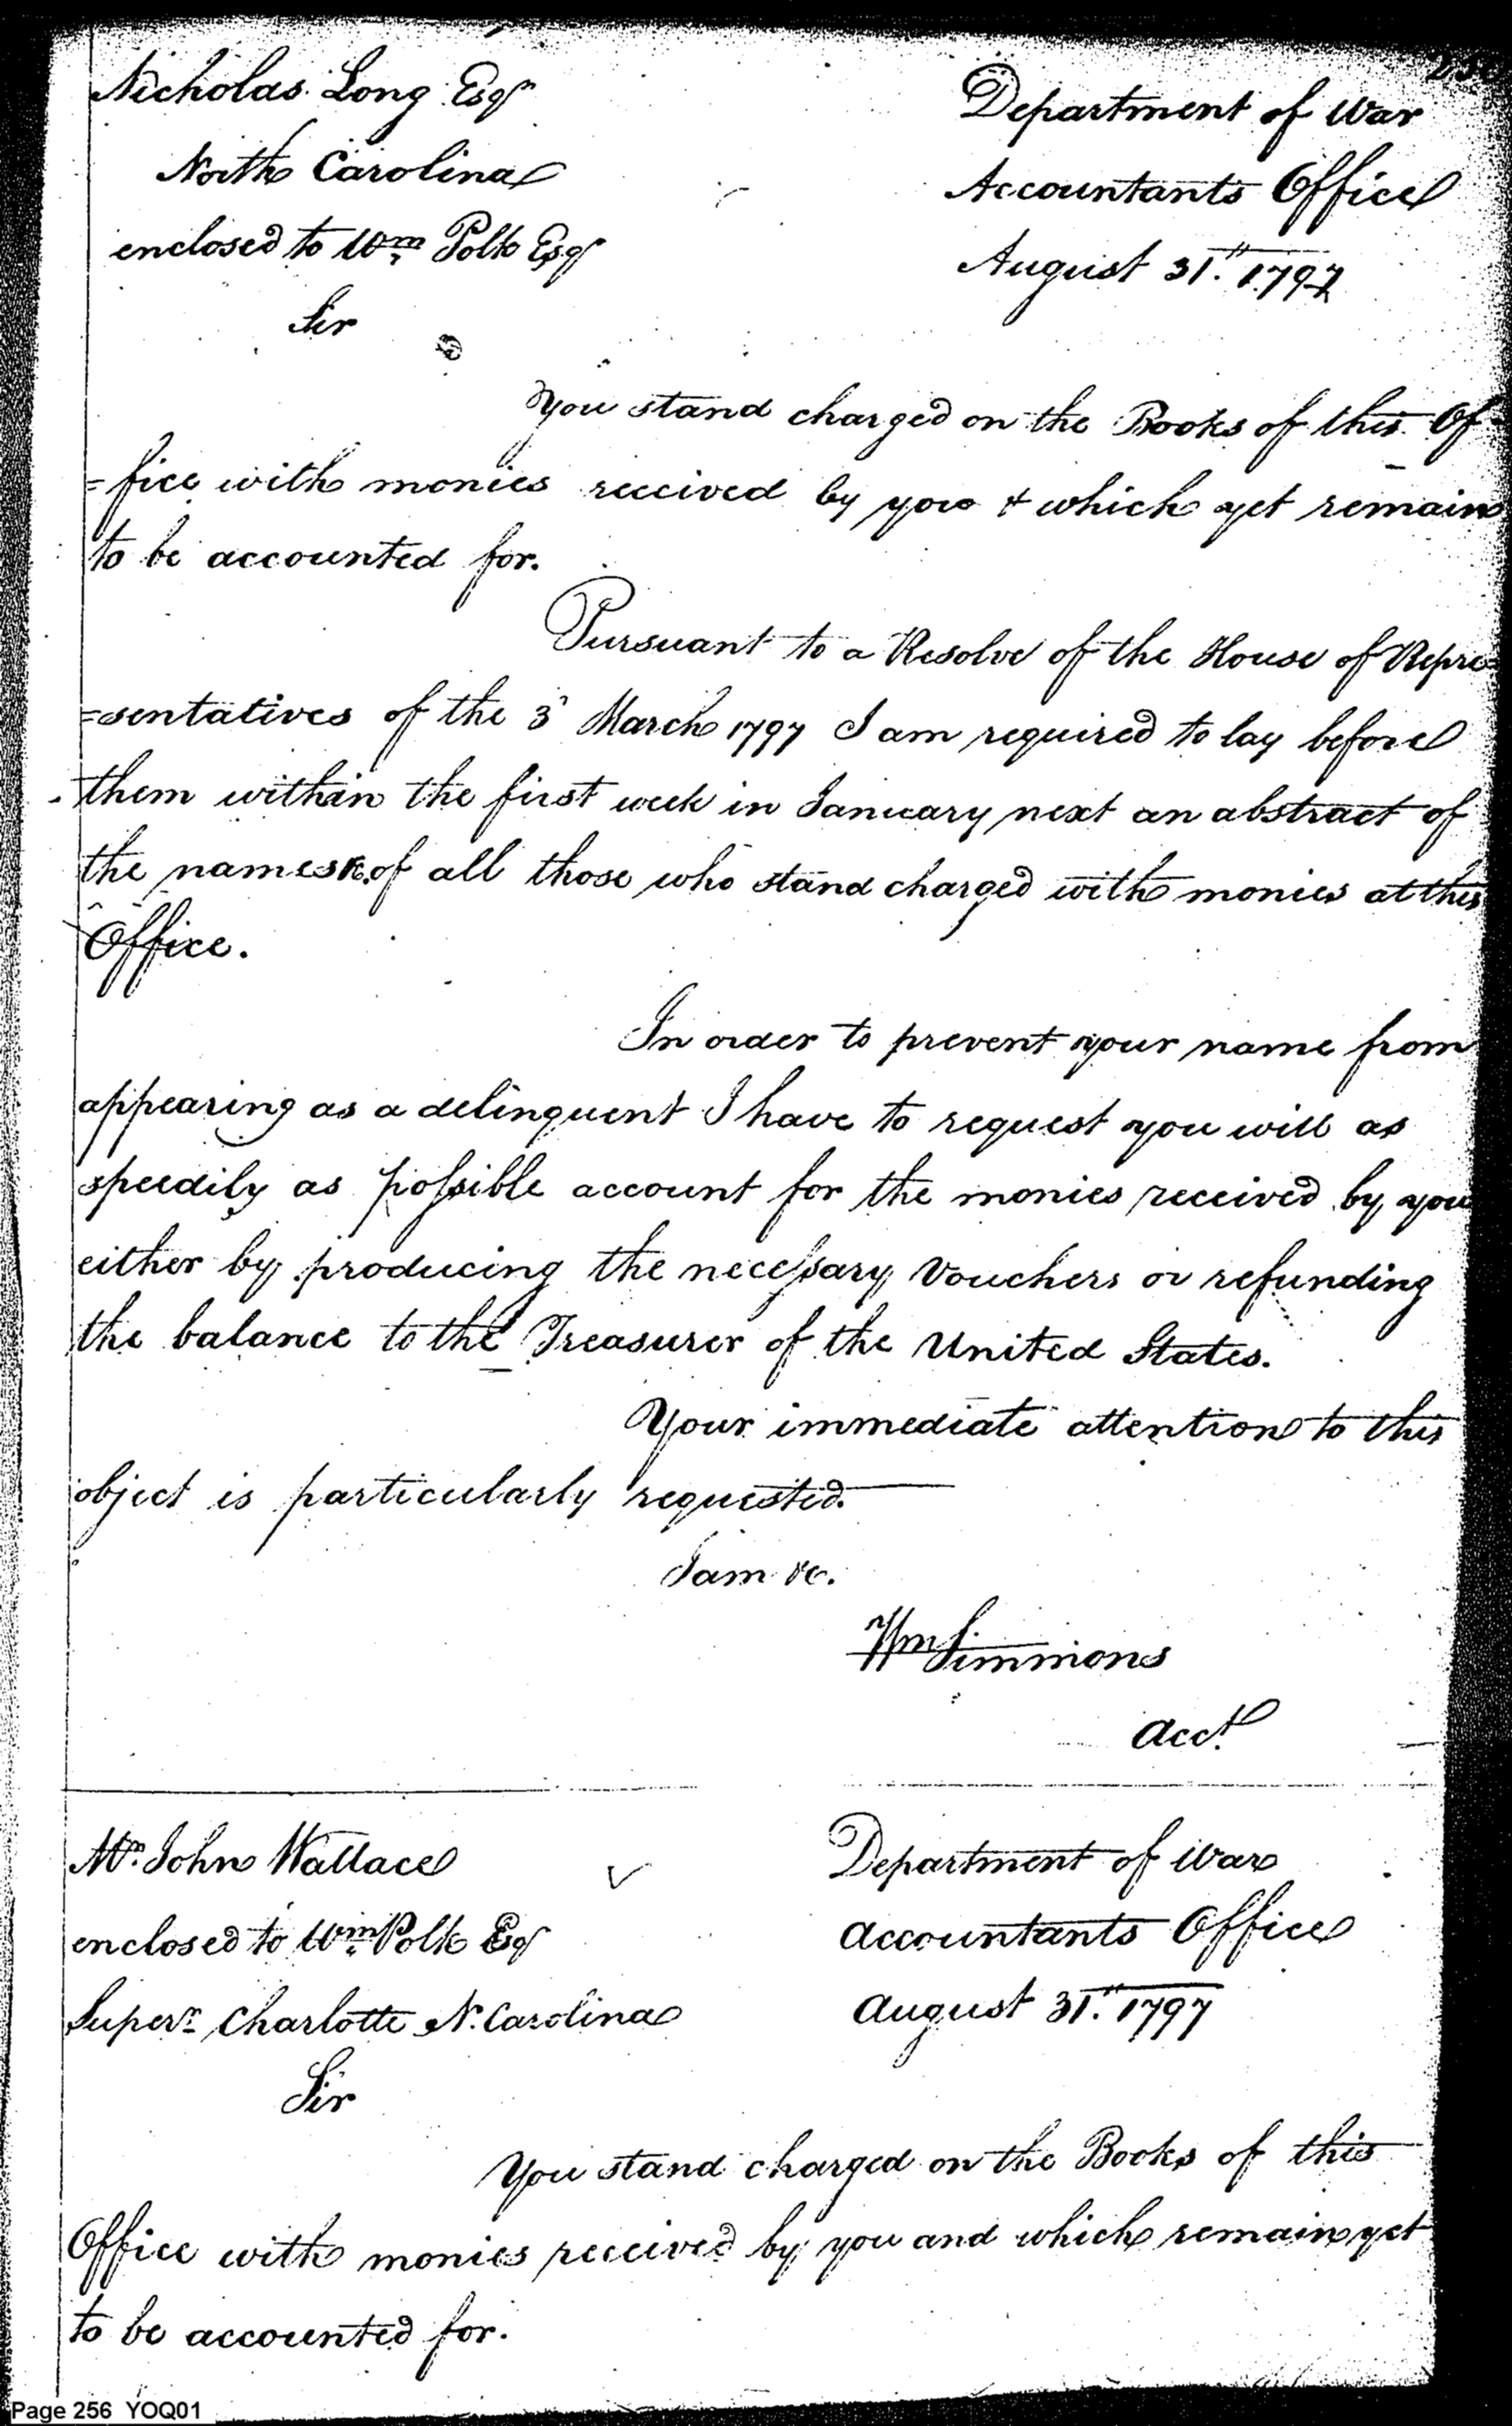 Nicholas Long Esqr
North Carolina
enclosed to Wm Polk Esqr
Sir
Department of War
Accountants Office
August 31st. 1797
You stand charged on the Books of this Of=
=fice with monies received by you & which yet remain
to be accounted for.
Pursuant to a Resolve of the House of Repre=
=sentatives of the 3d March 1797 I am required to lay before
them within the first week in January next an abstract of
the names &c. of all those who stand charged with monies at this
Office.
In order to prevent your name from
appearing as a delinquent I have to request you will as
speedily as possible account for the monies received by you
either by producing the necessary Vouchers or refunding
the balance to the Treasurer of the United States.
Your immediate attention to this
object is particularly requested.
I am &c.
Wm Simmons
Acct.
Mr. John Wallace
enclosed to Wm. Polk Esq
Superr. Charlotte N. Carolina
Sir
Department of War
Accountants Office
August 31st. 1797
You stand charged on the Books of this
Office with monies received by you and which remain yet
to be accounted for.
Page 256 YOQ01